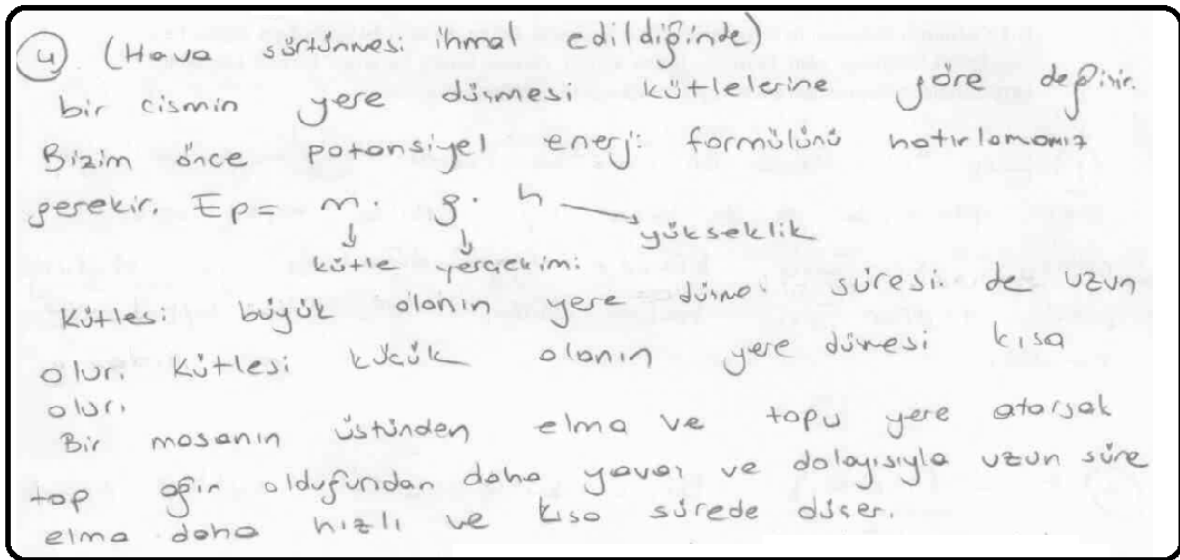 4 (Hava sürtünmesi ihmal edildiğinde)
bir cismin yere düşmesi kütlelerine göre değişir.
Bizim önce potansiyel enerji formülünü hatırlamamız
gerekir. Ep= m. g. h → yükseklik
kütle yerçekimi
Kütlesi büyük olanın yere düşme süresi de uzun
olur. Kütlesi küçük olanın yere düşmesi kısa
olur.
Bir masanın üstünden elma ve topu yere atarsak
top ağır olduğundan daha yavaş ve dolayısıyla uzun süre
elma daha hızlı ve kısa sürede düşer.